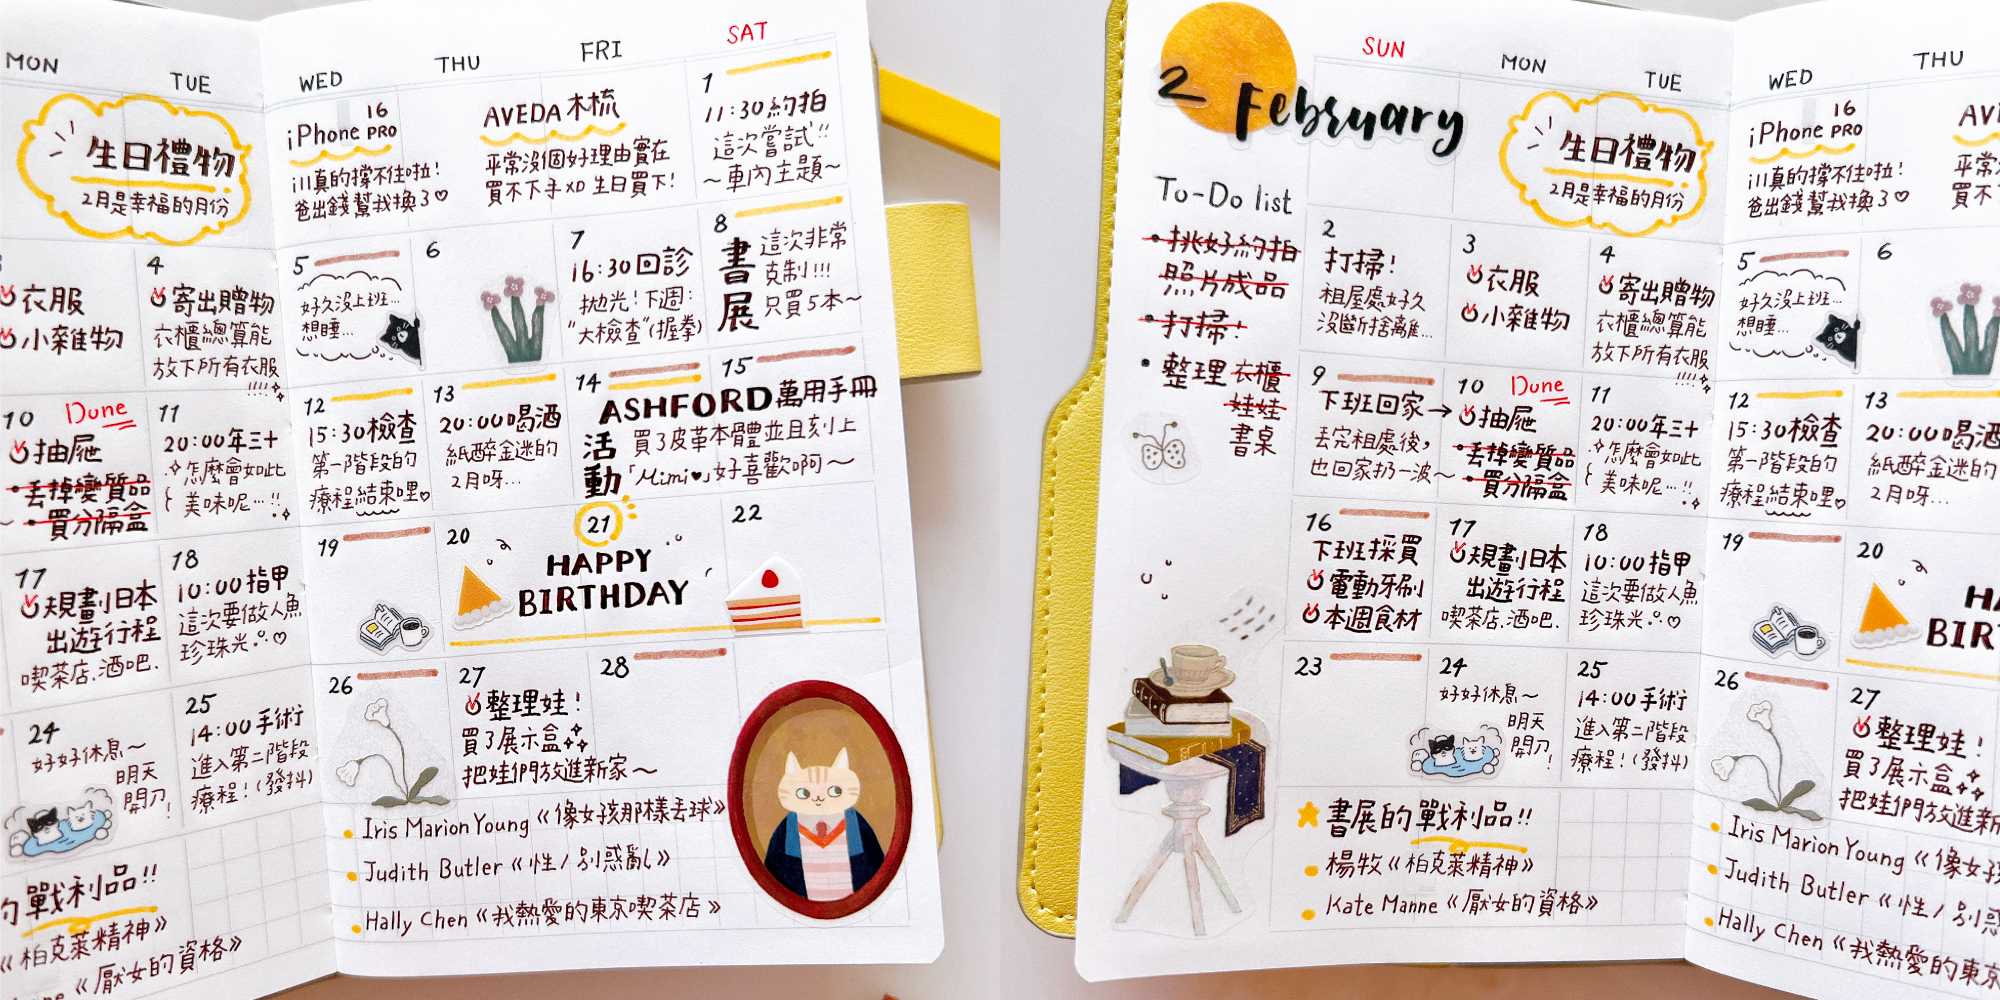 MON
TUE
WED
THU
FRI
SAT
生日禮物
2月是幸福的月份
iPhone 16 PRO
ill真的撐不住啦!
爸出錢幫我換了♡
AVEDA木梳
平常沒個好理由實在
買不下手XD 生日買下!
1
11:30約拍
這次嘗試!!
~車內主題~
4
衣服
小雜物
寄出贈物
衣櫃總算能
放下所有衣服
!!!!
5
好久沒上班...
想睡...
6
7
16:30回診
拋光!下週:
"大檢查"(握拳)
8
書展
這次非常
克制!!!
只買5本~
10 Dune
抽屜
丟掉變質品
買分隔盒
11
20:00年三十
怎麼會如此
美味呢…!!
12
15:30檢查
第一階段的
療程結束哩♡
13
20:00喝酒
紙醉金迷的
2月呀...
14
15
ASHFORD萬用手冊
活動
買了皮革本體並且刻上
「Mimi♥」好喜歡啊~
17
規劃日本
出遊行程
喫茶店.酒吧.
18
10:00指甲
這次要做人魚
珍珠光♡
19
20
21
22
HAPPY
BIRTHDAY
24
好好休息~
明天
開刀!
25
14:00手術
進入第二階段
療程!(發抖)
26
27
整理娃!
買了展示盒
把娃們放進新家~
28
的戰利品!!
《柏克萊精神》
《厭女的資格》
Iris Marion Young《像女孩那樣丟球》
Judith Butler《性/別惑亂》
Hally Chen《我熱愛的東京喫茶店》
2 February
SUN
MON
TUE
WED
THU
To-Do list
挑好約拍
照片成品
打掃!
整理 衣櫃
娃娃
書桌
生日禮物
2月是幸福的月份
iPhone 16 PRO
ill真的撐不住啦!
爸出錢幫我換了♡
AV
平常
買不
2
打掃!
租屋處好久
沒斷捨離...
3
衣服
小雜物
4
寄出贈物
衣櫃總算能
放下所有衣服
!!!!
5
好久沒上班...
想睡...
6
9
下班回家→
丟完租處後,
也回家扔一波~
10 Dune
抽屜
丟掉變質品
買分隔盒
11
20:00年三十
怎麼會如此
美味呢…!!
12
15:30檢查
第一階段的
療程結束哩♡
13
20:00喝酒
紙醉金迷的
2月呀...
16
下班採買
電動牙刷
本週食材
17
規劃日本
出遊行程
喫茶店.酒吧.
18
10:00指甲
這次要做人魚
珍珠光♡
19
20
HA
BIRT
23
24
好好休息~
明天
開刀!
25
14:00手術
進入第二階段
療程!(發抖)
26
27
整理娃!
買了展示盒
把娃們放進新
書展的戰利品!!
楊牧《柏克萊精神》
Kate Manne《厭女的資格》
Iris Marion Young《像女孩
Judith Butler《性/別惑
Hally Chen《我熱愛的東京